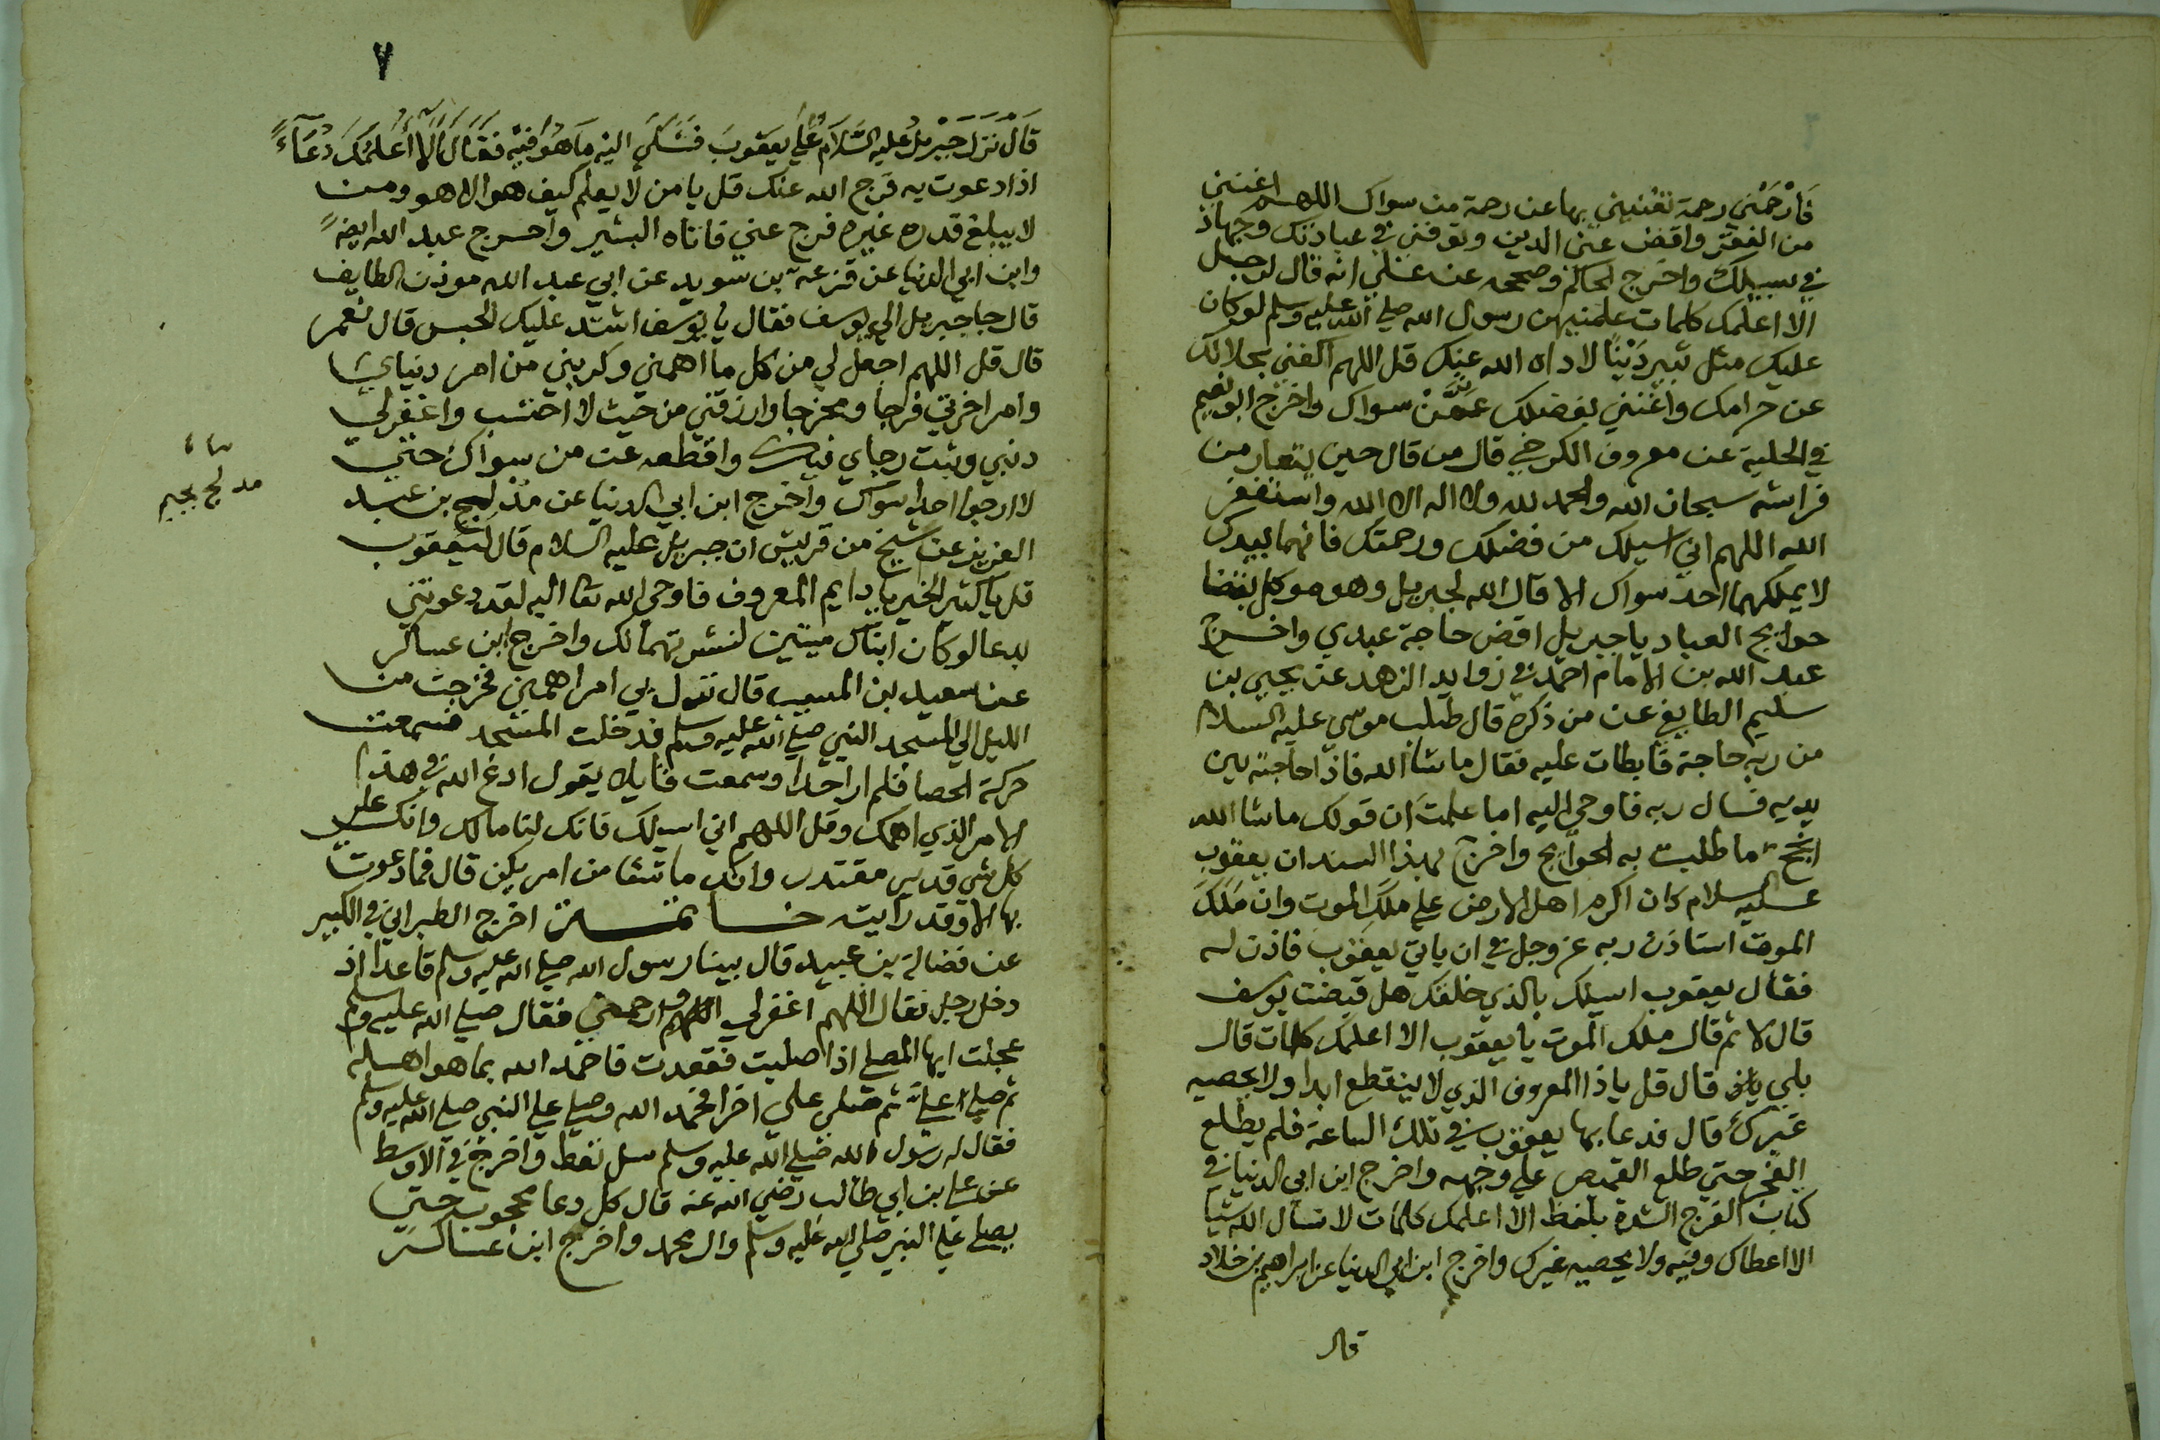 فَارْحَمْني رحمة تغنيني بها عن رحمة من سواك اللهم اغنني
من الفقر واقض عني الدين وتوفني في عبادتك وجهاد
في سبيلك واخرج الحاكم وصححه عن علي انه قال لرجل
الا اعلمك كلمات علمنيهن رسول الله صلي الله عليه وسلم لو كان
عليك مثل ثبير دَيْنًا لاداه الله عنك قل اللهم اكفني بحلالك
عن حرامك واغنني بفضلك عمَّنْ سواك واخرج ابو نعيم
في الحلية عن معروف الكرخي قال من قال حين يتعار من
فراشه سبحان الله والحمد لله ولا اله الا الله واستغفر
الله اللهم اني اسيلك من فضلك ورحمتك فانهما بيدك
لا يملكهما احد سواك الا قال الله لجبريل وهو موكل بقضا
حوايج العباد يا جبريل اقض حاجة عبدي واخرج
عبد الله بن الامام احمد في زوايد الزهد عن يحيي بن
سليم الطايفي عن من ذكره قال طلب موسي عليه السلام
من ربه حاجة فابطات عليه فقال ما شا الله فاذا حاجته بين
يديه فسال ربه فاوحي اليه اما علمت ان قولك ما شا الله
انجح ما طلبت به الحوايج واخرج بهذا السند ان يعقوب
عليه السلام كان اكرم اهل الارض علي ملك الموت وان ملك
الموت استاذن ربه عز وجل في ان ياتي يعقوب فاذن له
فقال يعقوب اسيلك بالذي خلقك هل قبضت يوسف
قال لا ثم قال ملك الموت يا يعقوب الا اعلمك كلمات قال
بلي قال قل يا ذا المعروف الذي لا ينقطع ابدا ولا يحصيه
غيرك قال فدعا بها يعقوب في تلك الساعة فلم يطلع
الفجر حتي طلع القميص علي وجهه واخرج ابن ابي الدنيا في
كتاب الفرج الشدة بلفظ الا اعلمك كلمات لا تسال الله شيا
الا اعطاك وفيه ولا يحصيه غيرك واخرج ابن ابي الدنيا عن ابراهيم بن خلاد
قال
٧
قَالَ نَزَلَ جَبْريل عليه السَّلَام عَلي يعَقوبَ فَشَكَي اليه مَا هُوَ فيْه فقَالَ أَلا أعَلمكَ دُعَآءً
اذا دعوت به فرج الله عنك قل يا من لا يعلم كيف هو الا هو ومن
لا يبلغ قدره غيره فرج عني فاتاه البشير واخرج عبد الله ايضا
وابن ابي الدنيا عن قزعة بن سويد عن ابي عبد الله موذن الطايف
قال جا جبريل الي يوسف فقال يا يوسف اشتد عليك الحبس قال نعم
قال قل اللهم اجعل لي من كل ما اهمني وكربني من امر دنياي
وامر اخرتي فرجا ومخرجا وارزقني من حيث لا احتسب واغفر لي
ذنبي وثبت رجاي واقطعه عن من سواك حتي
لا ارجوا احدا سواك واخرج ابن ابي الدنيا عن مدلج بن عبد
العزيز عن شيخ من قريش ان جبريل عليه السلام قال ليعقوب
قل يا كثير الخير يا دايم المعروف فاوحي الله تعا اليه لقد دعوتني
بدعا لو كان ابناك ميتين لنشرتهما لك واخرج ابن عساكر
عن سعيد بن المسيب قال نزل بي امر اهمني فخرجت من
الليل الي المسجد النبي صلي الله عليه وسلم فدخلت المسجد فسمعت
حركة الحصا فلم ار احدا وسمعت قايلا يقول ادع الله في هذا
الامر الذي اهمك وقل اللهم اني اسيلك فانك لنا مالك وانك علي
كل شي قدير مقتدر وانك ما تشا من امر يكن قال فما دعوت
بها الا وقد رايت خاتمة اخرج الطبراني في الكبير
عن فضالة بن عبيد قال بينا رسول الله صلي الله عليه وسلم قاعدا اذ
دخل رجل فقال اللهم اغفر لي اللهم ارحمني فقال صلي الله عليه وسلم
عجلت ايها المصلي اذا صليت فقعدت فاحمد الله بما هو اهله
ثم صلي اعليَّ ثم صلي اخر فحمد الله وصلي علي النبي صلي الله عليه وسلم
فقال له رسول الله صلي الله عليه وسلم سل تعط واخرج في الاوسط
عن علي بن ابي طالب رضي الله عنه قال كل دعا محجوب حتي
يصلي علي النبي صلي الله عليه وسلم وال محمد واخرج ابن عساكر
مدلج بجيم